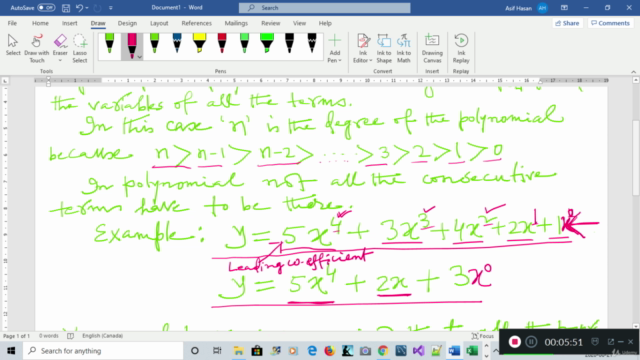 AutoSave Off
Document1 - Word
Search
Asif Hasan
AH
File Home Insert Draw Design Layout References Mailings Review View Help
Share Comments
Select Draw with Touch Eraser Lasso Select
Add Pen
Ink Editor Ink to Shape Ink to Math
Ink Replay
Tools Pens Convert Replay
the variables of all the terms.
In this case 'n' is the degree of the polynomial
because n > n-1 > n-2 > ...... > 3 > 2 > 1 > 0
In polynomial not all the consecutive
terms have to be there.
Example: y = 5x⁴ + 3x³ + 4x² + 2x¹ + 1
Leading co-efficient
y = 5x⁴ + 2x + 3x⁰
Page 1 of 1 0 words English (Canada)
Type here to search
00:05:51